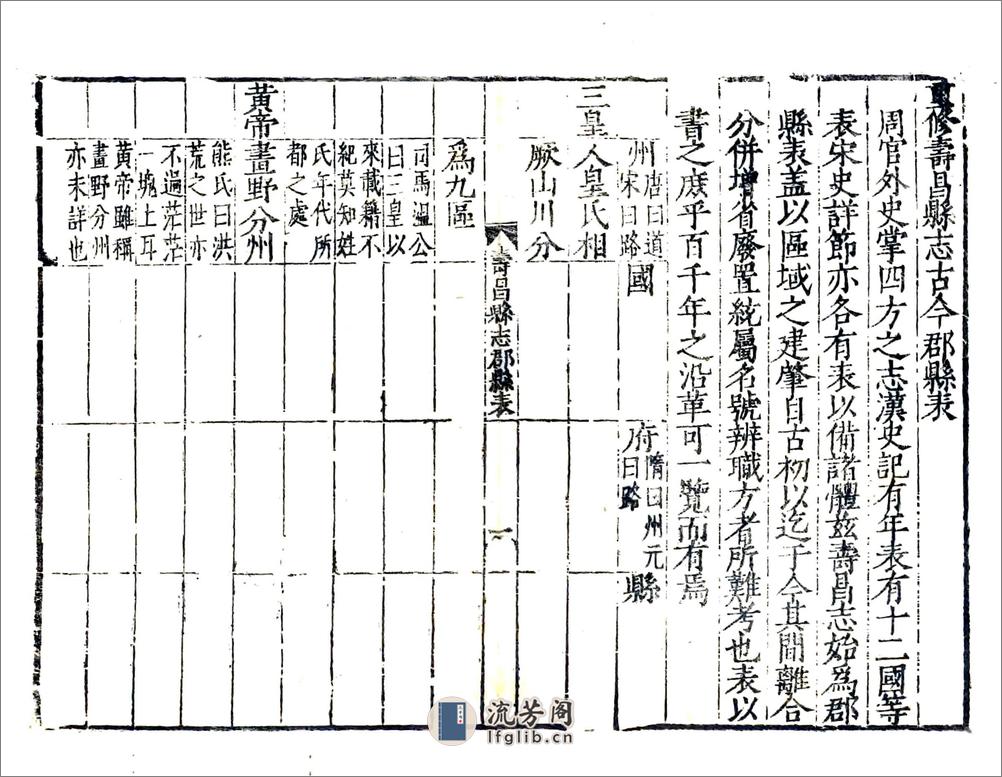 重修壽昌縣志古今郡縣表
周官外史掌四方之志漢史記有年表有十二國等
表宋史詳節亦各有表以備諸體玆壽昌志始爲郡
縣表盖以區域之建肇自古初以迄于今其間離合
分併增省廢置統屬名號辨職方者所難考也表以
書之庶乎百千年之沿革可一覽而有焉
州唐曰道
宋曰路
國
府隋曰州元
曰路
縣
三皇
人皇氏相
厥山川分
爲九區
司馬温公
曰三皇以
來載籍不
紀莫知姓
氏年代所
都之處
黃帝
畫野分州
熊氏曰洪
荒之世亦
不過茫茫
一塊土耳
黃帝雖稱
畫野分州
亦未詳也
壽昌縣志郡縣表
一
流芳阁
lfglib.cn